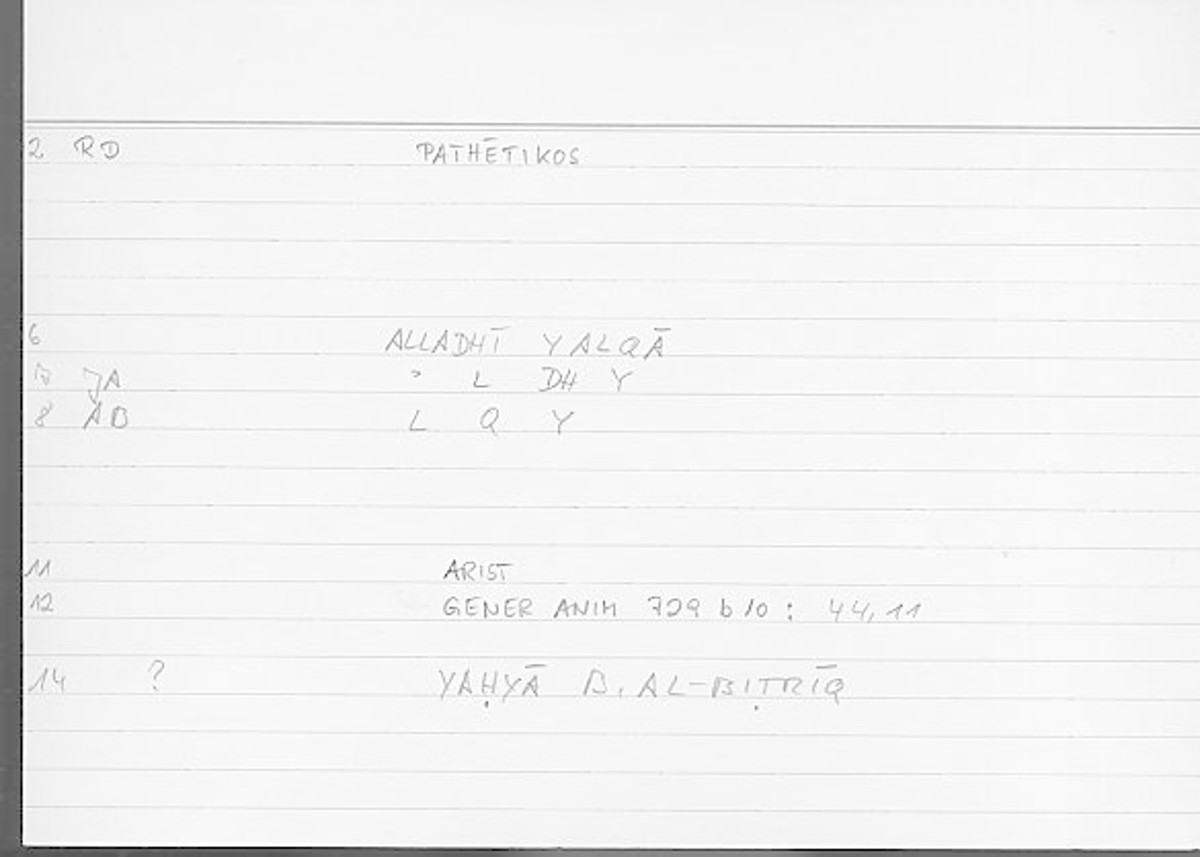 2 RD PATHĒTIKOS
6 ALLADHĪ YALQĀ
JA ʾ L DH Y
8 AB L Q Y
11 ARIST
12 GENER ANIM 729 b 10 : 44, 11
14 ? YAḤYĀ B. AL-BIṬRĪQ